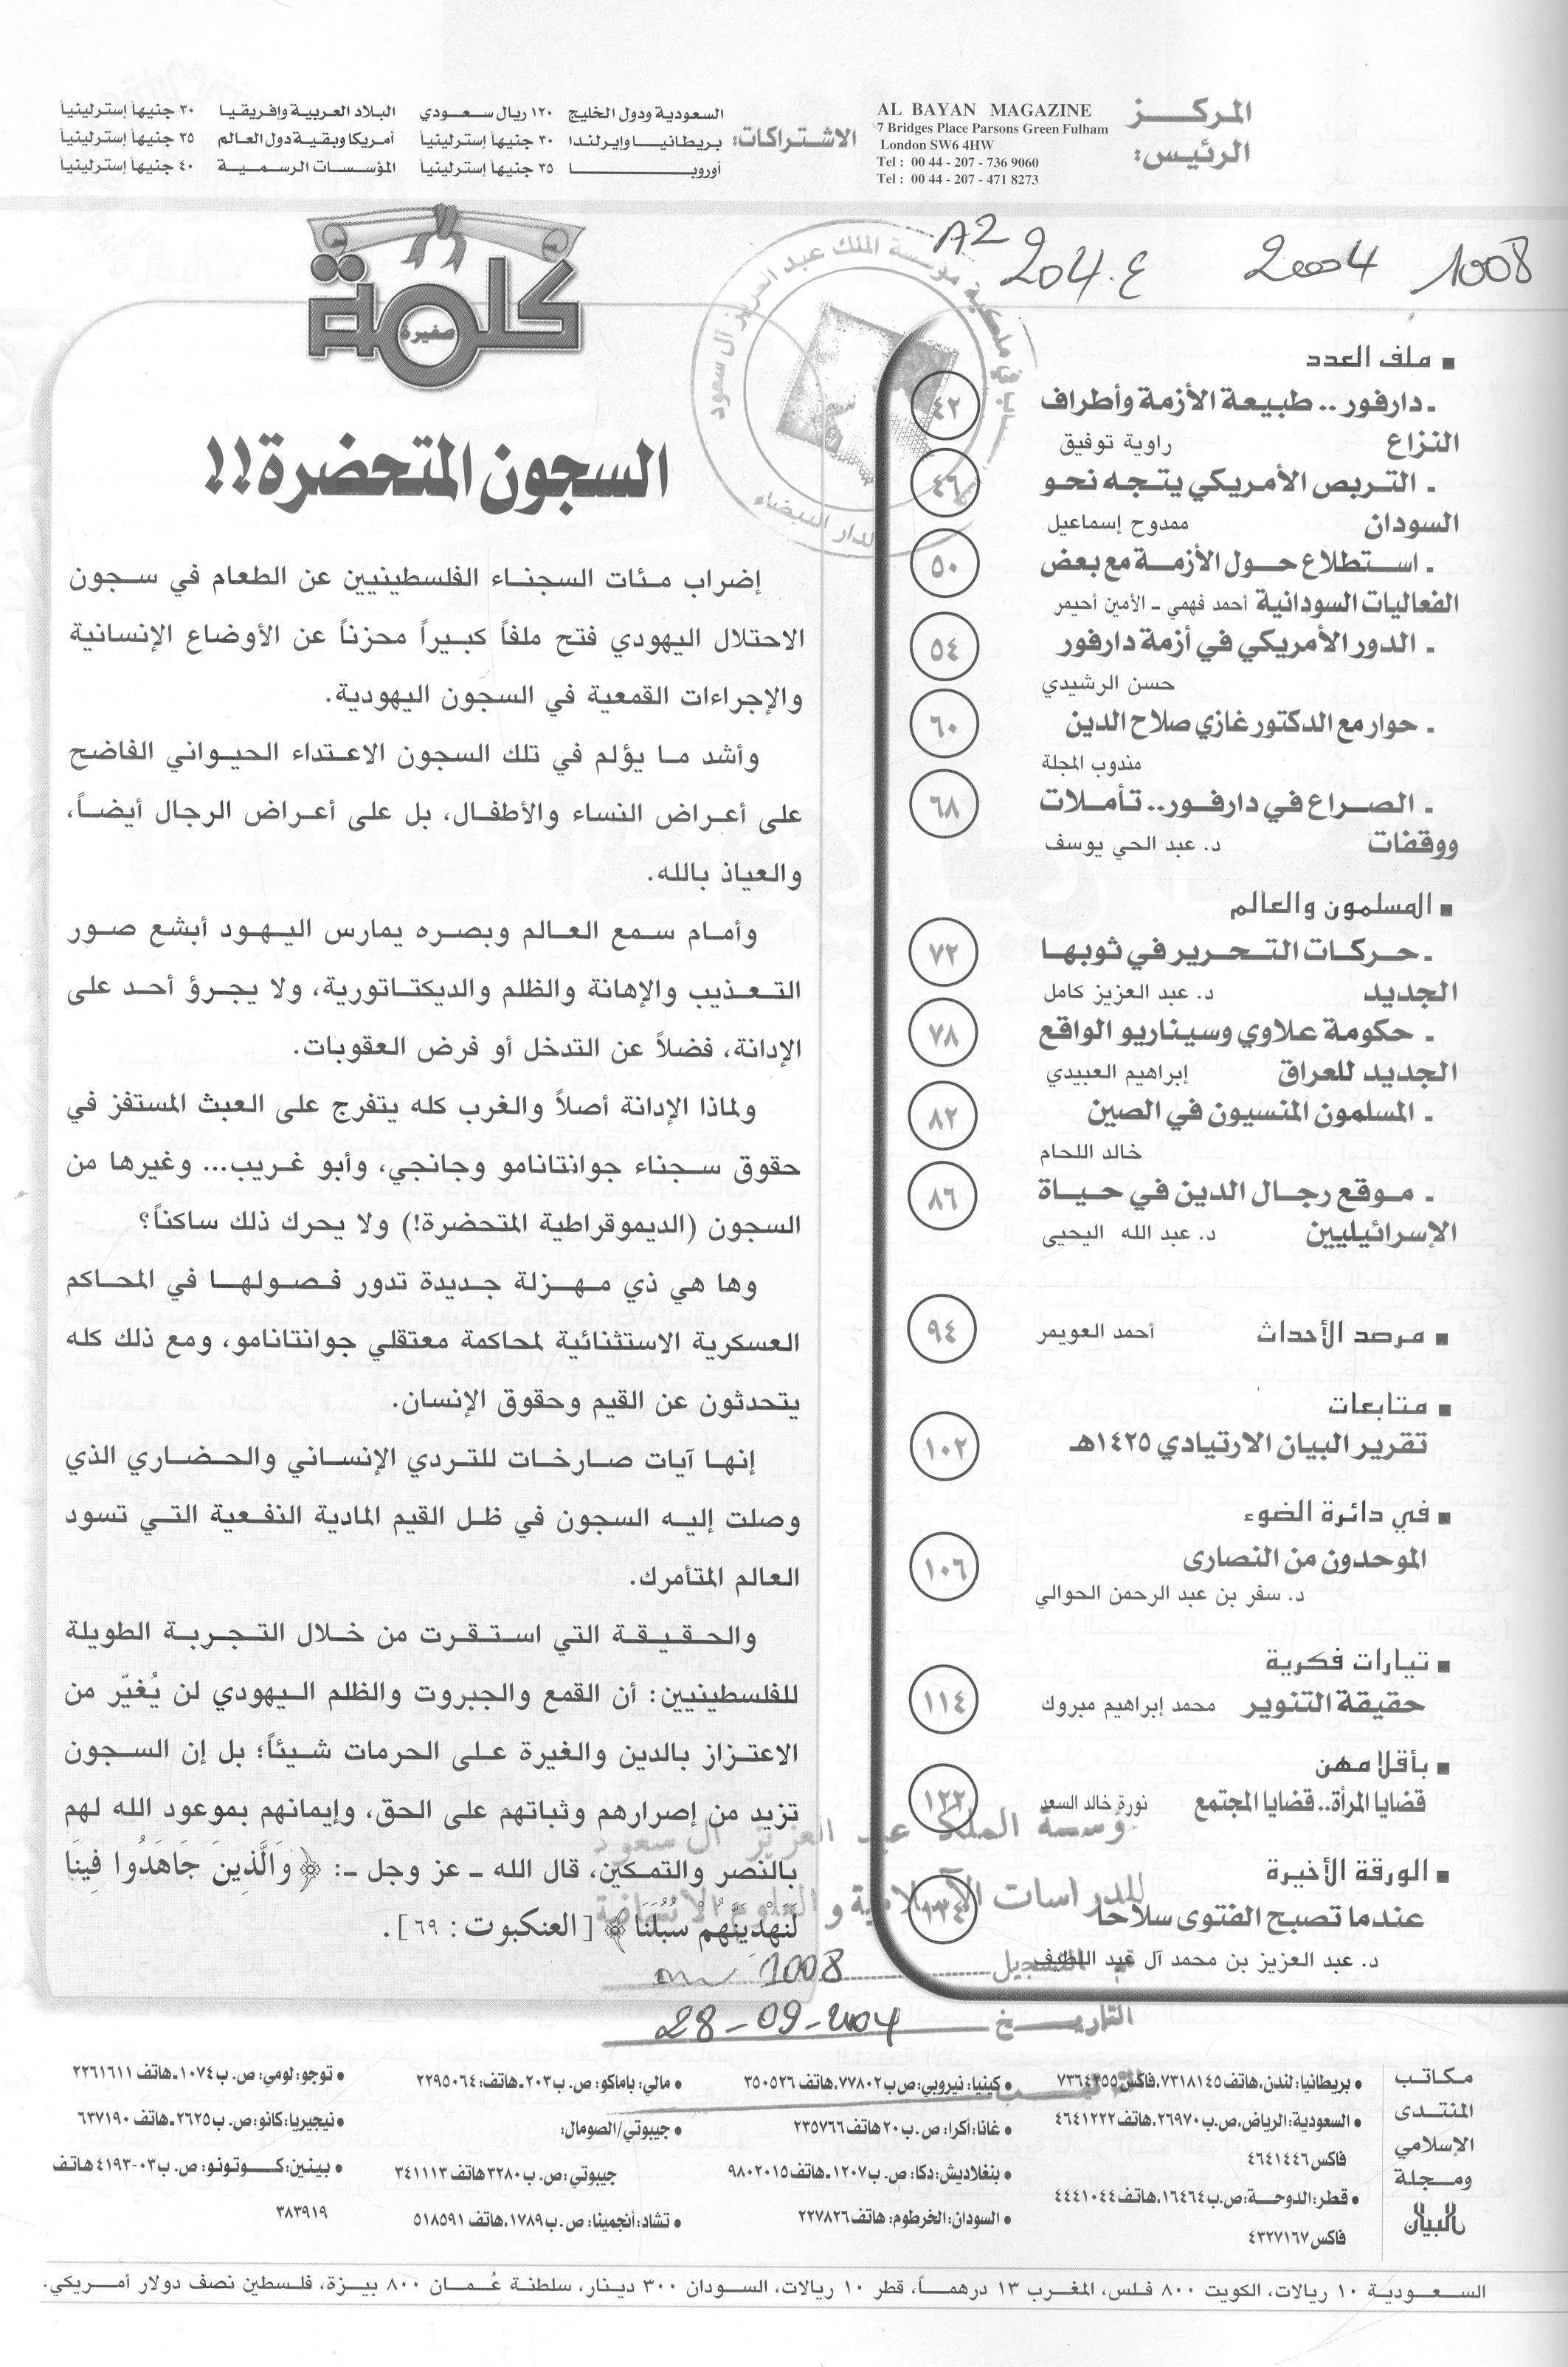 المركز
الرئيس:
AL BAYAN MAGAZINE
7 Bridges Place Parsons Green Fulham
London SW6 4HW
Tel : 00 44 - 207 - 736 9060
Tel : 00 44 - 207 - 471 8273
الاشتراكات:
السعودية ودول الخليج ١٢٠ ريال سعودي البلاد العربية وإفريقيا ٣٠ جنيهاً إسترلينياً
بريطانيا وإيرلندا ٣٠ جنيهاً إسترلينياً أمريكا وبقية دول العالم ٣٥ جنيهاً إسترلينياً
أوروبا ٣٥ جنيهاً إسترلينياً المؤسسات الرسمية ٤٠ جنيهاً إسترلينياً
A2
204.ع 2004 1008
مؤسسة الملك عبد العزيز آل سعود
الدار البيضاء
■ ملف العدد
ـ دارفور .. طبيعة الأزمة وأطراف
النزاع راوية توفيق ٤٢
ـ التربص الأمريكي يتجه نحو
السودان ممدوح إسماعيل ٤٦
ـ استطلاع حول الأزمة مع بعض
الفعاليات السودانية أحمد فهمي ـ الأمين أحيمر ٥٠
ـ الدور الأمريكي في أزمة دارفور ٥٤
حسن الرشيدي
ـ حوار مع الدكتور غازي صلاح الدين ٦٠
مندوب المجلة
ـ الصراع في دارفور.. تأملات
ووقفات د. عبد الحي يوسف ٦٨
■ المسلمون والعالم
ـ حركات التحرير في ثوبها
الجديد د. عبد العزيز كامل ٧٢
ـ حكومة علاوي وسيناريو الواقع
الجديد للعراق إبراهيم العبيدي ٧٨
ـ المسلمون المنسيون في الصين ٨٢
خالد اللحام
ـ موقع رجال الدين في حياة
الإسرائيليين د. عبد الله اليحيى ٨٦
■ مرصد الأحداث أحمد العويمر ٩٤
■ متابعات
تقرير البيان الارتيادي ١٤٢٥هـ ١٠٢
■ في دائرة الضوء
الموحدون من النصارى ١٠٦
د. سفر بن عبد الرحمن الحوالي
■ تيارات فكرية
حقيقة التنوير محمد إبراهيم مبروك ١١٤
■ بأقلامهن
قضايا المرأة.. قضايا المجتمع نورة خالد السعد ١٢٢
■ الورقة الأخيرة
عندما تصبح الفتوى سلاحا ١٣٤
د. عبد العزيز بن محمد آل عبد اللطيف
كلمة
صغيرة
السجون المتحضرة!!
إضراب مئات السجناء الفلسطينيين عن الطعام في سجون
الاحتلال اليهودي فتح ملفاً كبيراً محزناً عن الأوضاع الإنسانية
والإجراءات القمعية في السجون اليهودية.
وأشد ما يؤلم في تلك السجون الاعتداء الحيواني الفاضح
على أعراض النساء والأطفال، بل على أعراض الرجال أيضاً،
والعياذ بالله.
وأمام سمع العالم وبصره يمارس اليهود أبشع صور
التعذيب والإهانة والظلم والديكتاتورية، ولا يجرؤ أحد على
الإدانة، فضلاً عن التدخل أو فرض العقوبات.
ولماذا الإدانة أصلاً والغرب كله يتفرج على العبث المستفز في
حقوق سجناء جوانتانامو وجانجي، وأبو غريب... وغيرها من
السجون (الديموقراطية المتحضرة!) ولا يحرك ذلك ساكناً؟
وها هي ذي مهزلة جديدة تدور فصولها في المحاكم
العسكرية الاستثنائية لمحاكمة معتقلي جوانتانامو، ومع ذلك كله
يتحدثون عن القيم وحقوق الإنسان.
إنها آيات صارخات للتردي الإنساني والحضاري الذي
وصلت إليه السجون في ظل القيم المادية النفعية التي تسود
العالم المتأمرك.
والحقيقة التي استقرت من خلال التجربة الطويلة
للفلسطينيين: أن القمع والجبروت والظلم اليهودي لن يُغيّر من
الاعتزاز بالدين والغيرة على الحرمات شيئاً؛ بل إن السجون
تزيد من إصرارهم وثباتهم على الحق، وإيمانهم بموعود الله لهم
بالنصر والتمكين، قال الله ـ عز وجل ـ: ﴿وَالَّذِينَ جَاهَدُوا فِينَا
لَنَهْدِيَنَّهُمْ سُبُلَنَا﴾ [العنكبوت: ٦٩].
مؤسسة الملك عبد العزيز آل سعود
للدراسات الإسلامية والعلوم الإنسانية
التسجيل 1008
التاريخ 28-09-2004
مكاتب
المنتدى
الإسلامي
ومجلة
البيان
● بريطانيا: لندن، هاتف ٧٣١٨١٤٥، فاكس ٧٣٦٤٢٥٥
● السعودية: الرياض، ص.ب ٢٦٩٧٠، هاتف ٤٦٤١٢٢٢
فاكس ٤٦٤١٤٤٦
● قطر: الدوحة: ص.ب ١٦٤٦٤، هاتف ٤٤٤١٠٤٤
فاكس ٤٣٢٧١٦٧
● كينيا: نيروبي: ص ب ٧٧٨٠٢، هاتف ٣٥٠٥٢٦
● غانا: أكرا: ص.ب ٢٠ هاتف ٢٣٥٧٦٦
● بنغلاديش: دكا: ص. ب ١٢٠٧ ـ هاتف ٩٨٠٢٠١٥
● السودان: الخرطوم: هاتف ٢٢٧٨٢٦
● مالي: باماكو: ص. ب ٢٠٣ ـ هاتف: ٢٢٩٥٠٦٤
● جيبوتي/الصومال:
جيبوتي: ص. ب ٣٢٨٠ هاتف ٣٤١١١٣
● تشاد: أنجمينا: ص. ب ١٧٨٩، هاتف ٥١٨٥٩١
● توجو: لومي: ص. ب ١٠٧٤ ـ هاتف ٢٢٦١٦١١
● نيجيريا: كانو: ص. ب ٢٦٢٥ ـ هاتف ٦٣٧١٩٠
● بينين: كوتونو: ص. ب ٠٣-٤١٩٣ هاتف
٣٨٣٩١٩
السعودية ١٠ ريالات، الكويت ٨٠٠ فلس، المغرب ١٣ درهماً، قطر ١٠ ريالات، السودان ٣٠٠ دينار، سلطنة عُمان ٨٠٠ بيزة، فلسطين نصف دولار أمريكي.